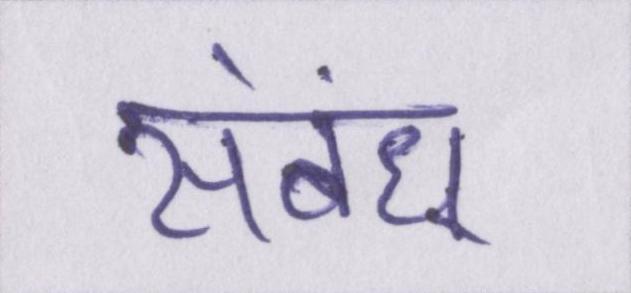 संबंध